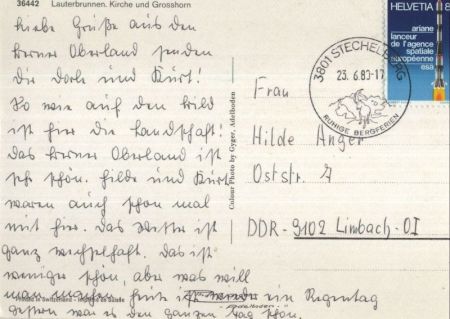 36442 Lauterbrunnen. Kirche und Grosshorn
Liebe Grüße aus dem
Berner Oberland senden
dir Dorle und Kurt!
So wie auf dem Bild
ist hier die Landschaft!
Das Berner Oberland ist
sehr schön. Hilde und Kurt
waren auch schon mal
mit hier. Das Wetter ist
ganz wechselhaft. Das ist
weniger schön, aber was will
man machen. Heute ist wieder ein Regentag
gestern war es den ganzen Tag schön.
Printed in Switzerland - Imprimé en Suisse
Colour Photo by Gyger, Adelboden
HELVETIA 8
ariane
lanceur
de l'agence
spatiale
européenne
esa
3801 STECHELBERG
23. 6.80-17
RUHIGE BERGFERIEN
Frau
Hilde Anger
Oststr. 7
DDR-9102 Limbach-OI